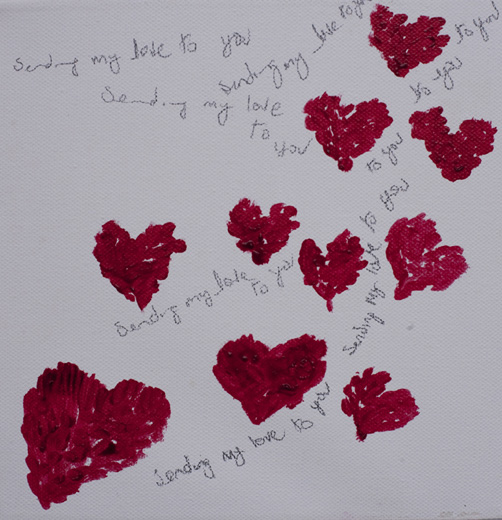 Sending my love to you
Sending my love to you
to you
Sending my love
to
you
to you
to you
Sending my love
to you
Sending my love to you
Sending my love to you